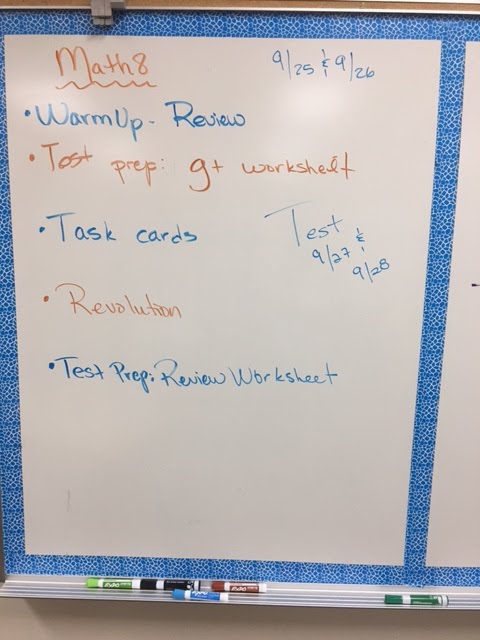 Math 8
9/25 & 9/26
• Warm Up - Review
• Test prep: g+ worksheet
• Task cards
Test
9/27 &
9/28
• Revolution
• Test Prep: Review Worksheet
EXPO
EXPO
EXPO